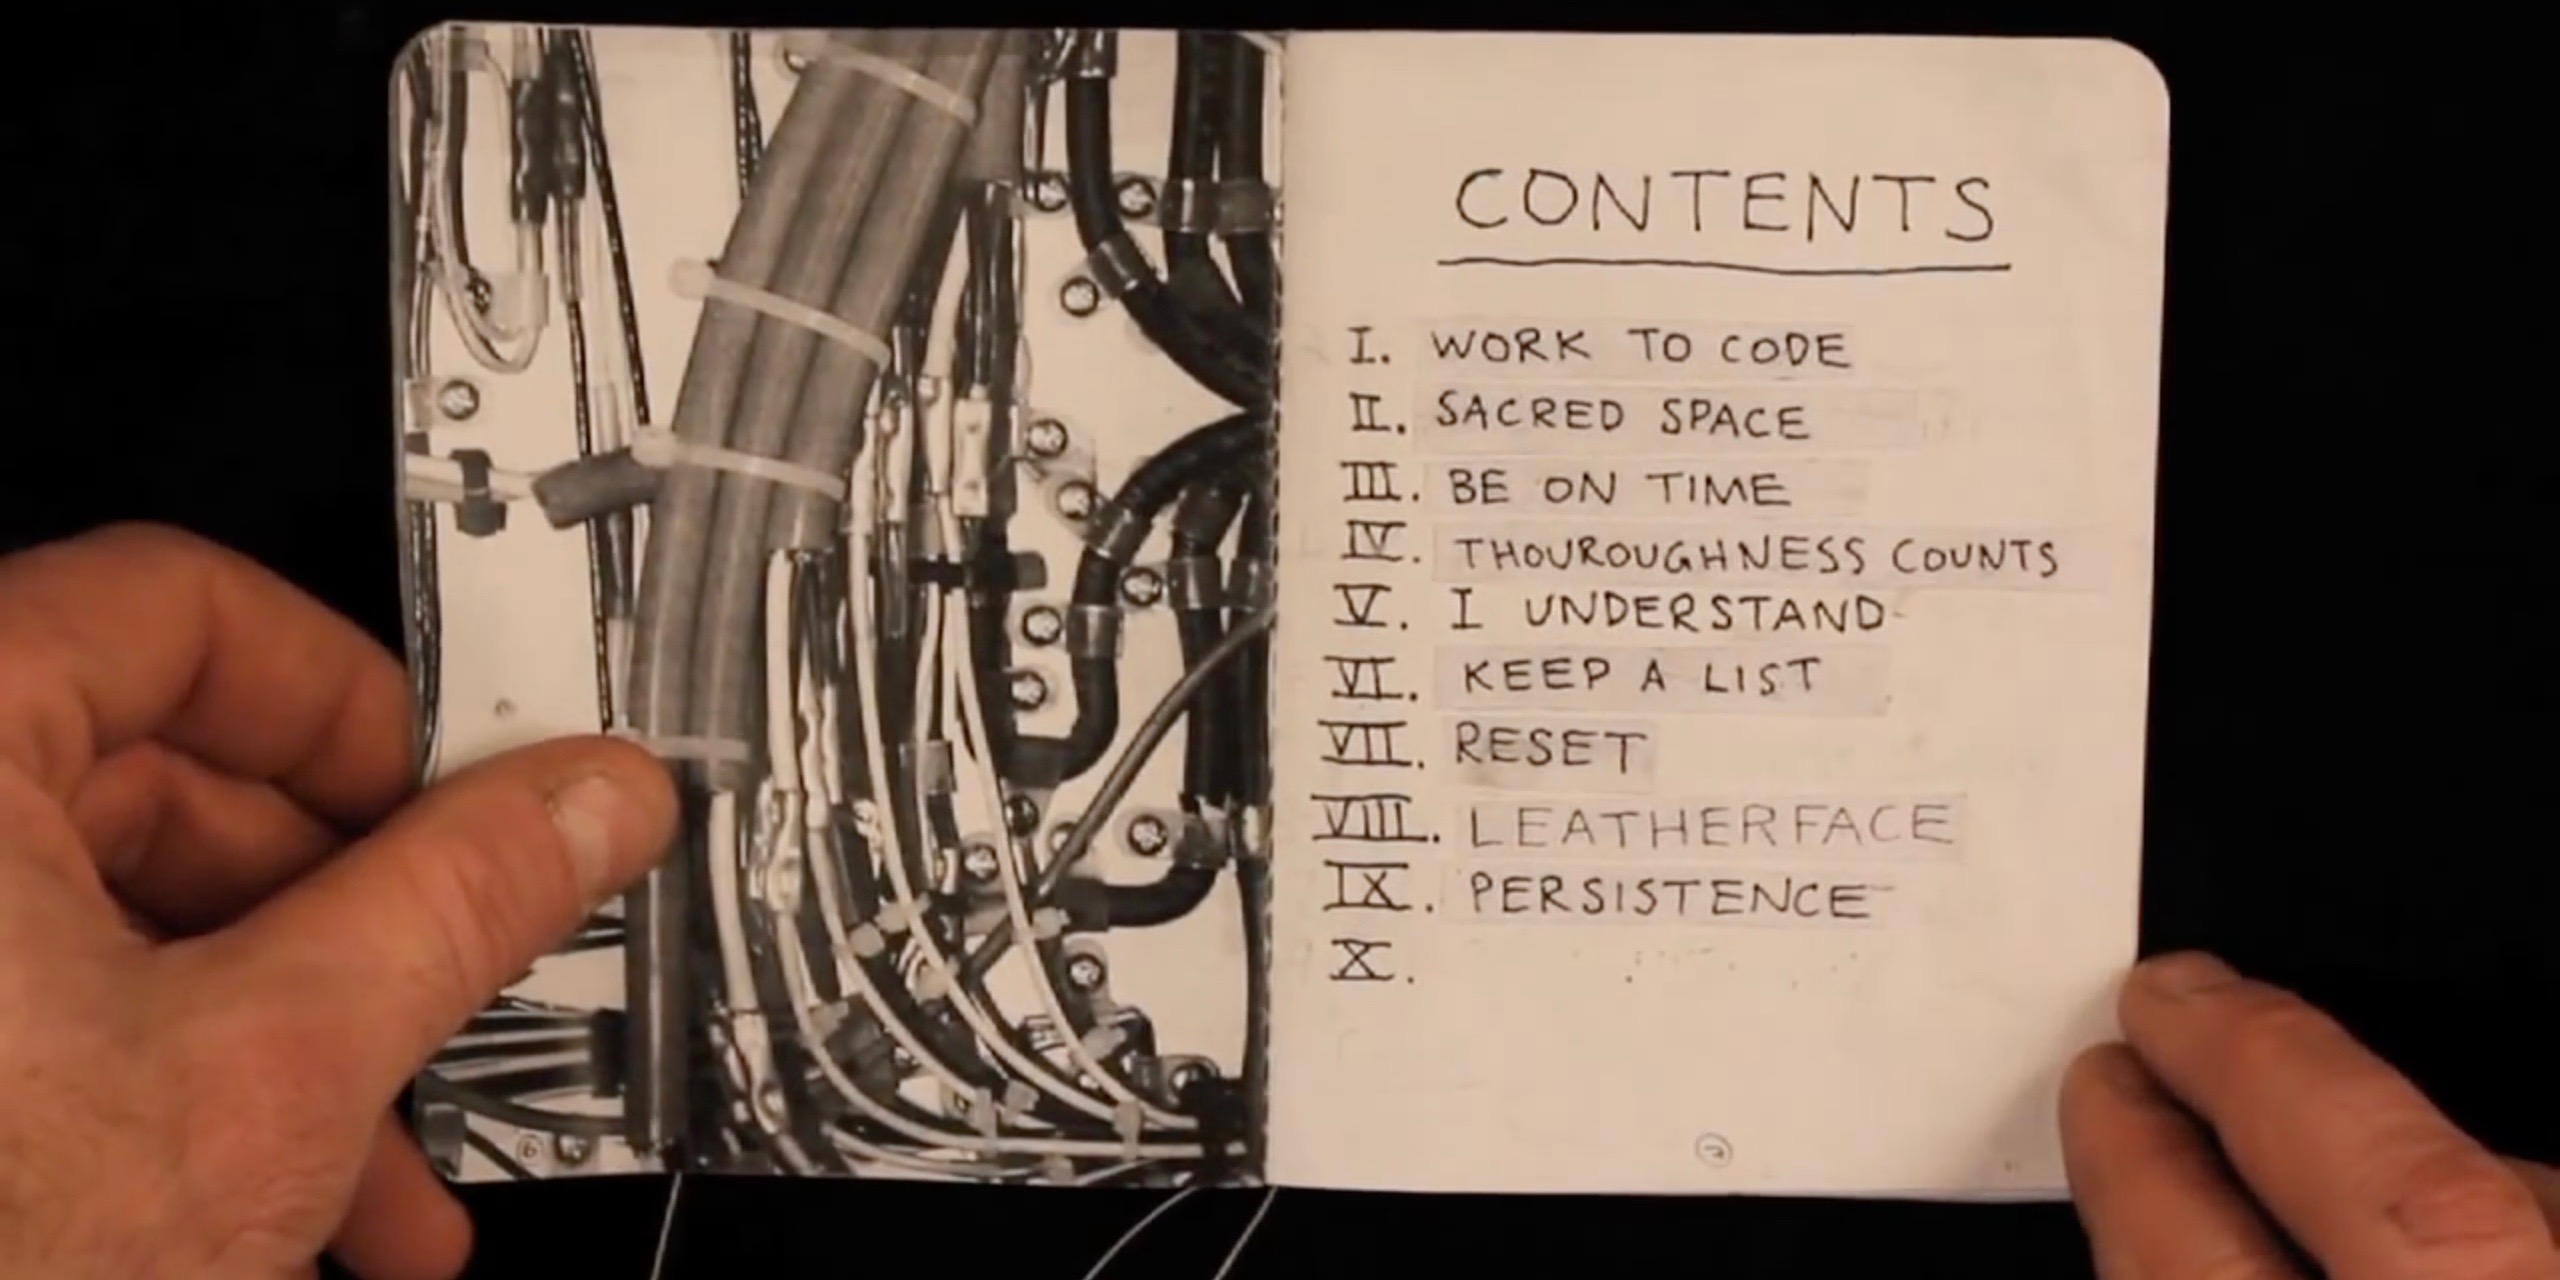 6
CONTENTS
I. WORK TO CODE
II. SACRED SPACE
III. BE ON TIME
IV. THOUROUGHNESS COUNTS
V. I UNDERSTAND
VI. KEEP A LIST
VII. RESET
VIII. LEATHERFACE
IX. PERSISTENCE
X.
7